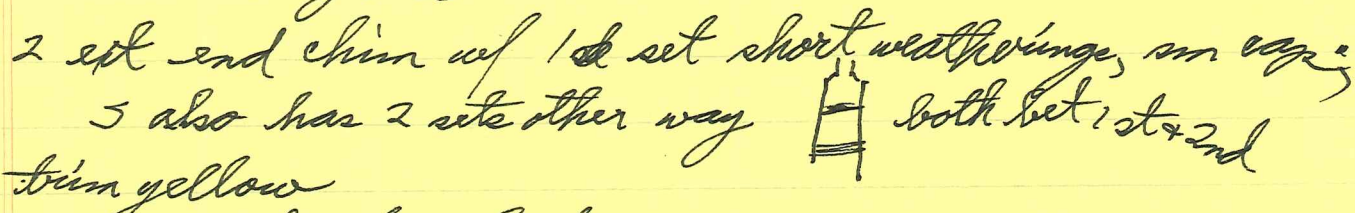 2 ext end chim w/ 1 set short weatherings, sm cap;
S also has 2 sets other way both bet 1st + 2nd
trim yellow